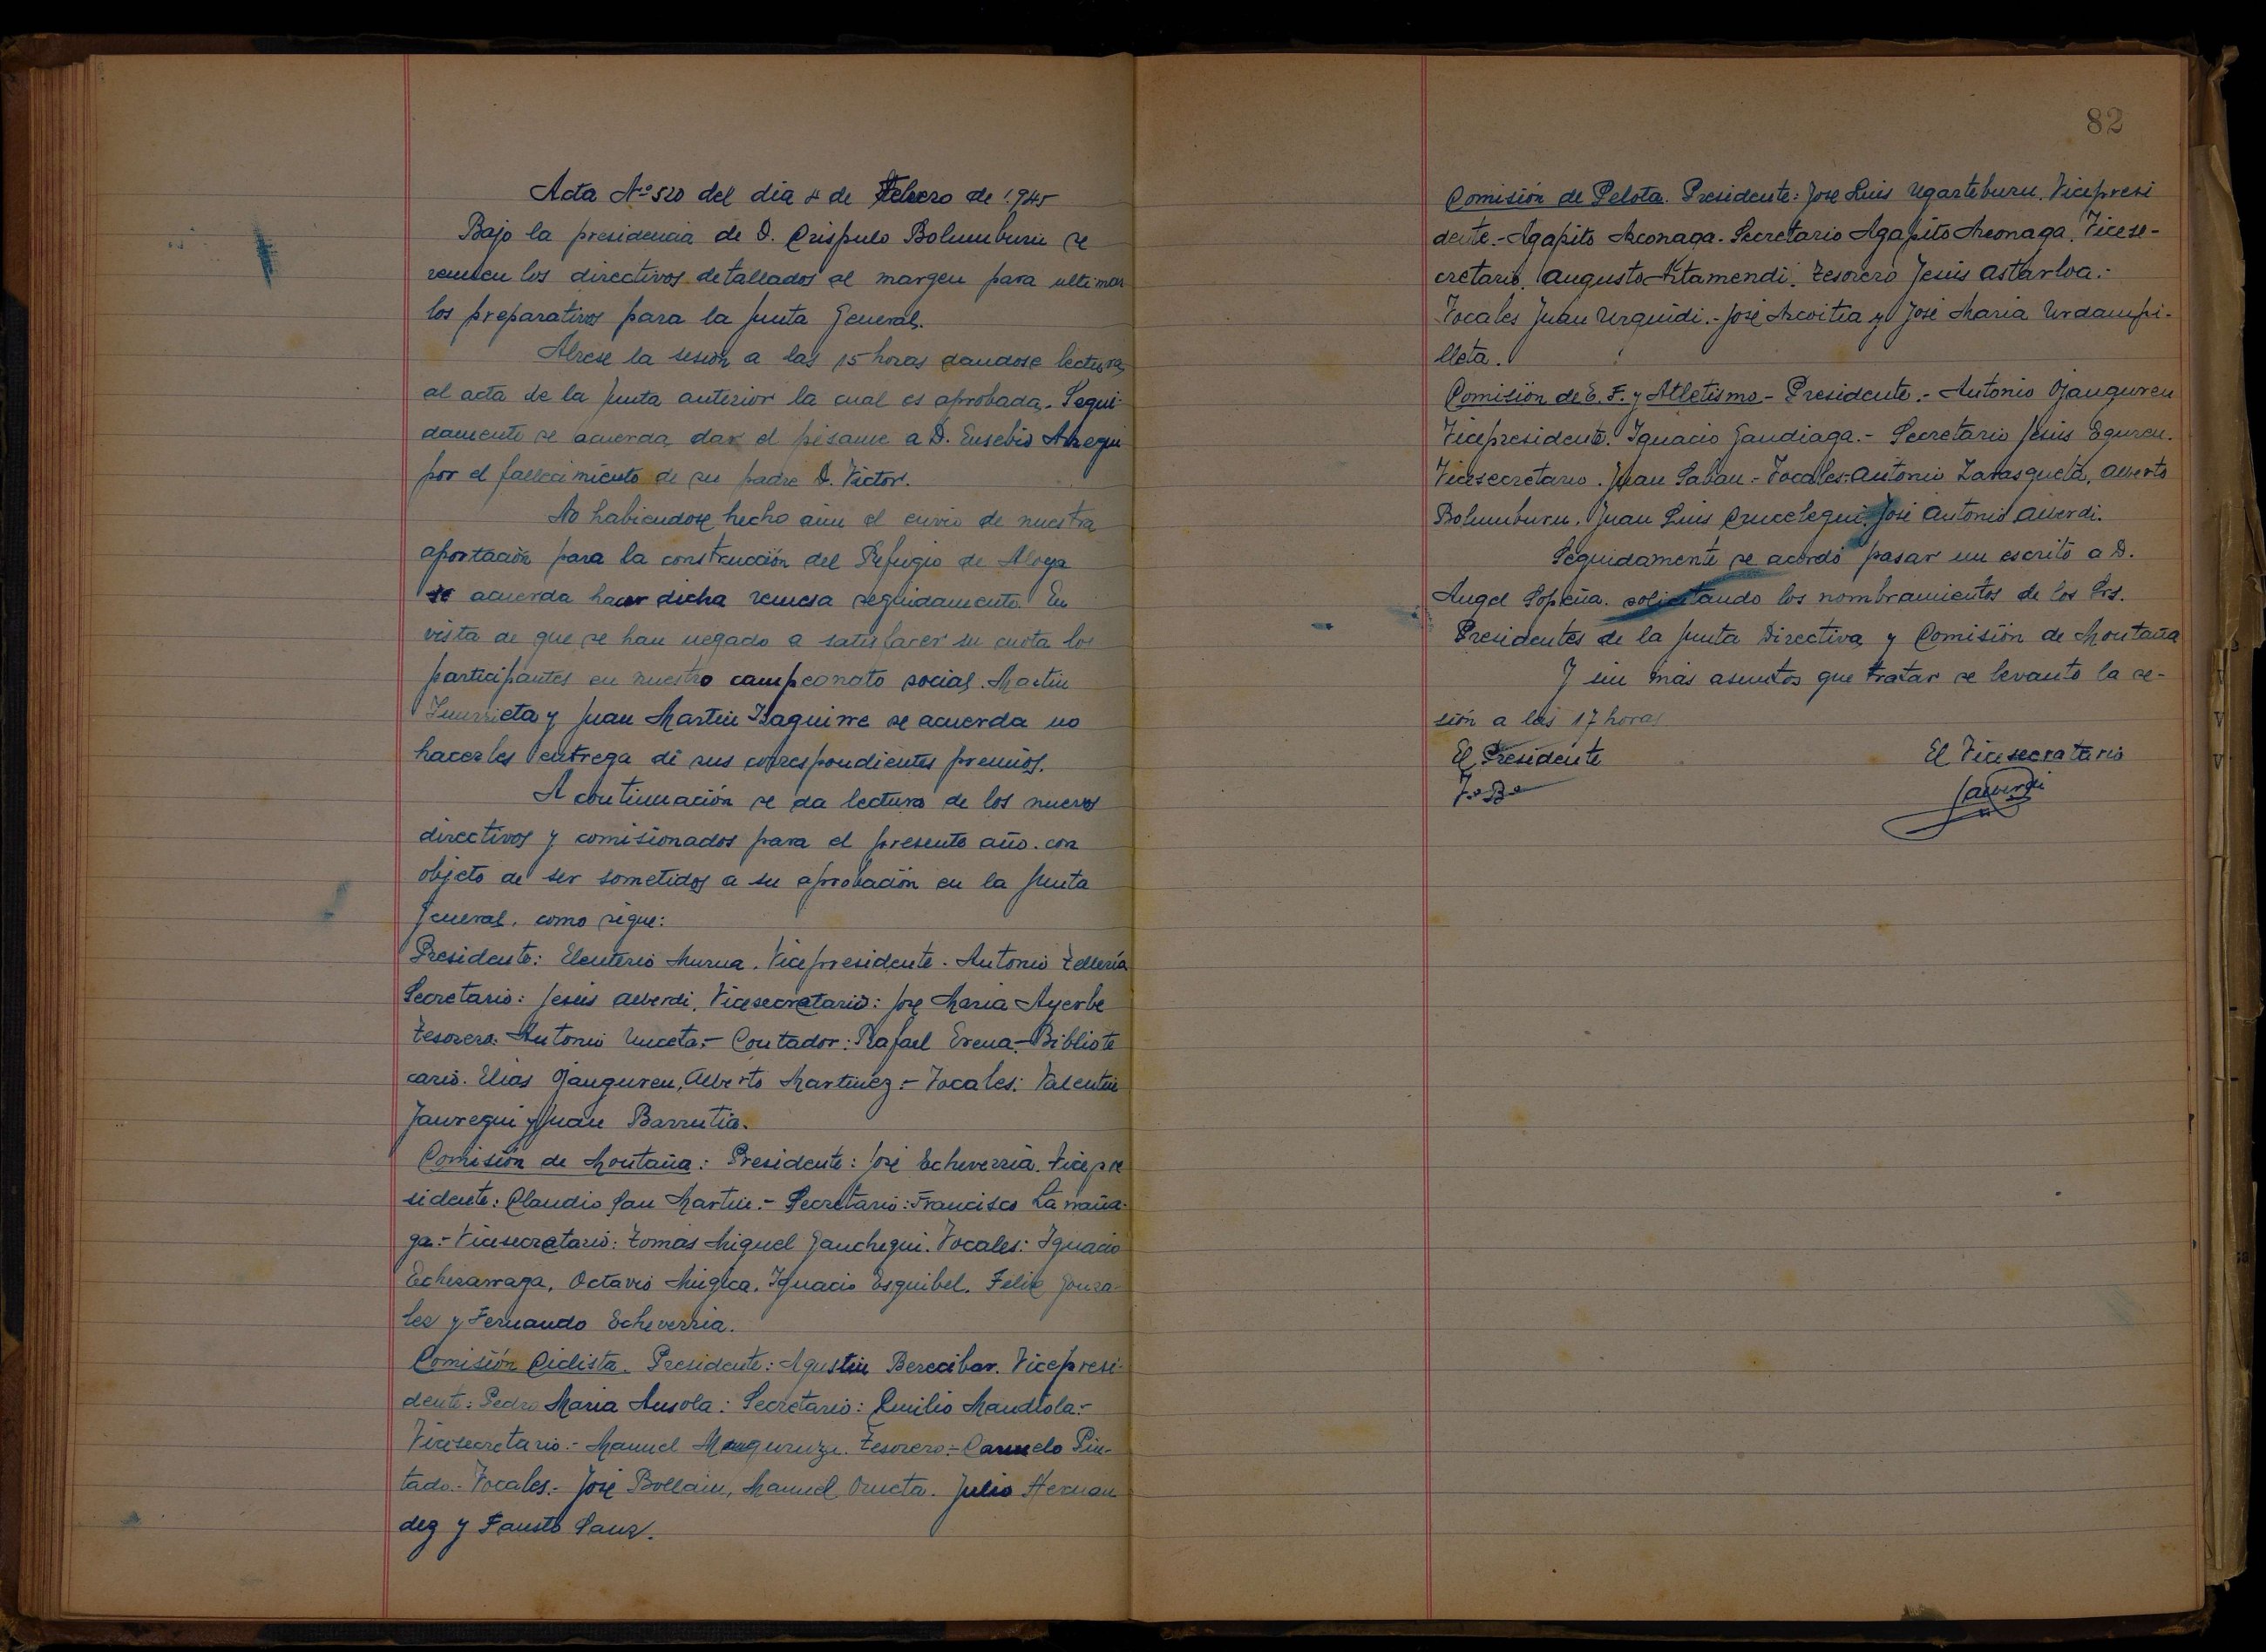 Acta Nº 520 del dia 4 de Febrero de 1.945
Bajo la presidencia de D. Crispulo Bolumburu se
reunen los directivos detallados al margen para ultimar
los preparativos para la Junta General.
Abrese la sesion a las 15 horas dandose lectura
al acta de la Junta anterior la cual es aprobada. Segui-
damente se acuerda dar el pésame a D. Eusebio Arregui
por el fallecimiento de su padre D. Victor.
No habiendose hecho aun el envio de nuestra
aportación para la construcción del Refugio de
se acuerda hacer dicha remesa seguidamente. En
vista de que se han negado a satisfacer su cuota los
participantes en nuestro campeonato social. Martin
y Juan Martin Izaguirre se acuerda no
hacerles entrega de sus correspondientes premios.
A continuación se da lectura de los nuevos
directivos y comisionados para el presente año. con
objeto de ser sometidos a su aprobación en la Junta
General. como sigue:
Presidente: Eleuterio Murua. Vicepresidente. Antonio Telleria
Secretario: Jesus Alberdi. Vicesecretario: Jose Maria Ayerbe
Tesorero. Antonio Unceta.- Contador: Rafael Erena.- Bibliote
cario. Elias Ojanguren, Alberto Martinez.- Vocales: Valentin
Jauregui y Juan Barrutia.
Comisión de Montaña: Presidente: José Echeverria. Vicepre
sidente: Claudio San Martin.- Secretario: Francisco Larraña-
ga.- Vicesecretario: Tomas Miguel Ganchegui. Vocales: Ignacio
Echezarraga, Octavio Mugica, Ignacio Esquibel. Felix Gonza-
lez y Fernando Echeverria.
Comisión Ciclista. Presidente: Agustin Berecibar. Vicepresi-
dente: Pedro Maria Ansola: Secretario: Emilio Mandiola.-
Vicesecretario.- Manuel Tesorero.- Carmelo Pin-
tado.- Vocales.- José Bollain, Manuel Orueta. Julio Hernan
dez y Fausto Sanz.
82
Comisión de Pelota. Presidente: Jose Luis Ugarteburu. Vicepresi
dente.- Agapito Arconaga. Secretario Agapito Arconaga. Vicese-
cretario, Augusto Aitamendi. Tesorero Jesus Astarloa.-
Vocales Juan Urquidi.- José Arcoitia y José Maria Urdampi-
lleta.
Comisión de E. F. y Atletismo - Presidente.- Antonio Ojanguren
Vicepresidente. Ignacio Gandiaga.- Secretario Jesus Eguren.
Vicesecretario. Juan Saban.- Vocales: Antonio Larasqueta, Alberto
Bolumburu, Juan Luis Crucelegui, José Antonio Alberdi.
Seguidamente se acordó pasar un escrito a D.
Angel Sopeña. solicitando los nombramientos de los Srs.
Presidentes de la Junta Directiva y Comisión de Montaña
Y sin más asuntos que tratar se levanto la se-
sión a las 17 horas
El Presidente
El Vicesecretario